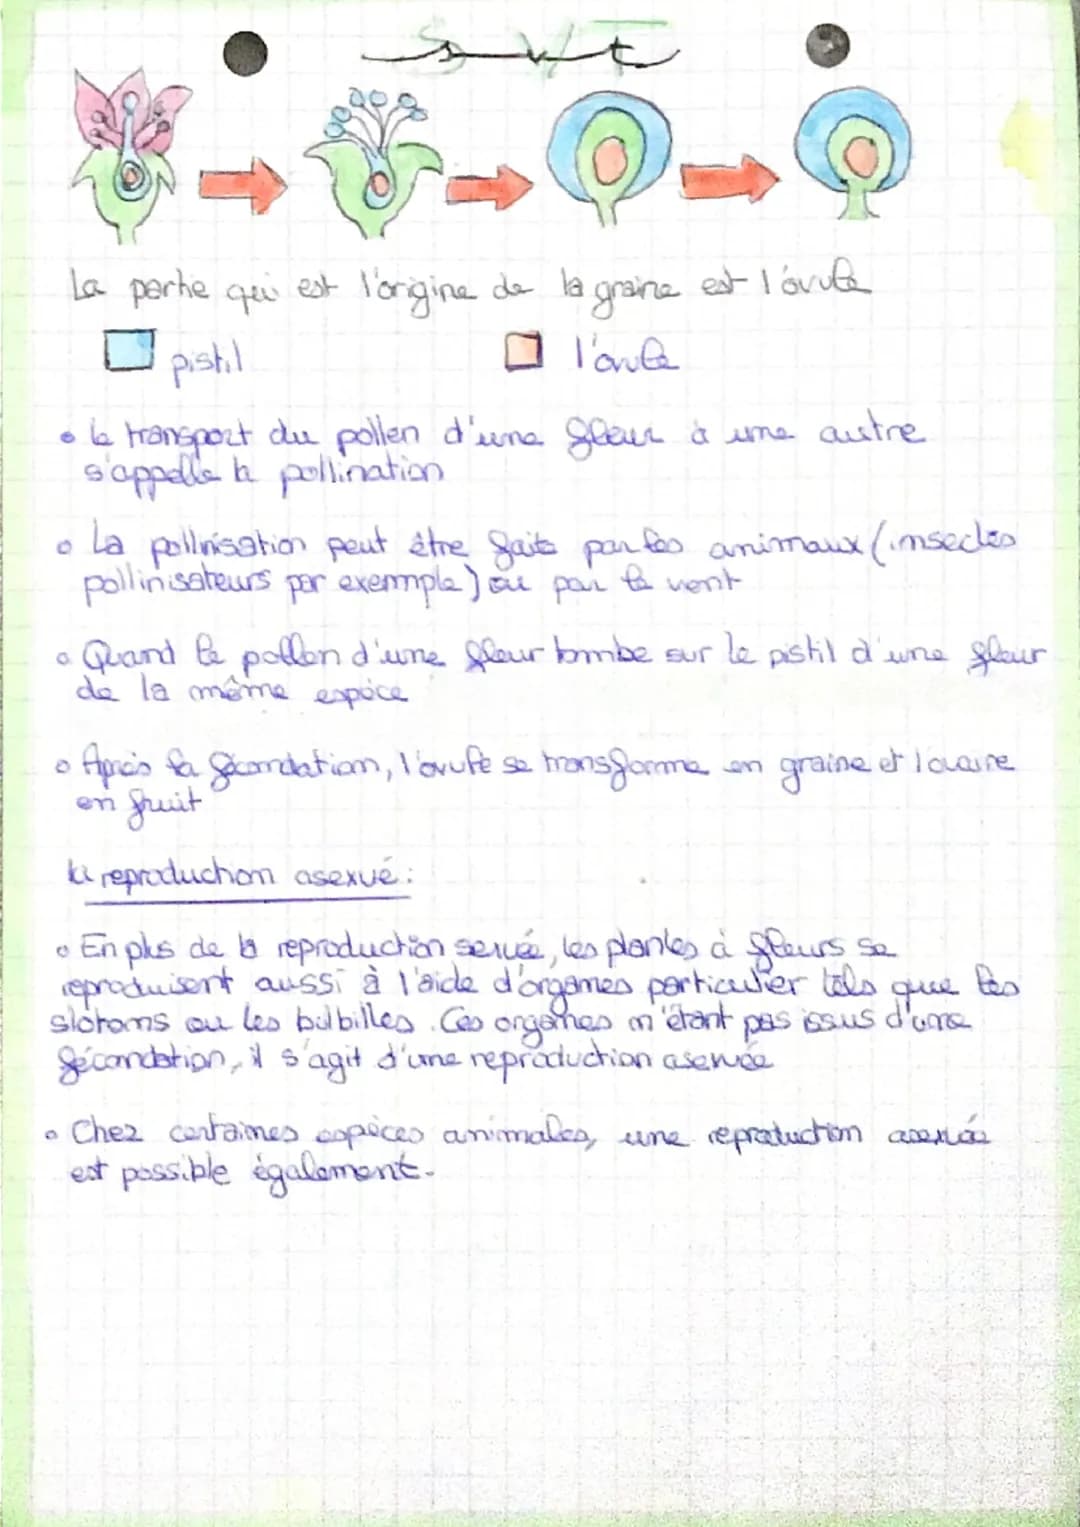 SVT
La partie qui est l'origine de la graine est l'ovule
pistil
l'ovule
• le transport du pollen d'une fleur à une autre
s'appelle la pollination
• La pollinisation peut être faite par les animaux (insectes
pollinisateurs par exemple) ou par le vent
• Quand le pollen d'une fleur tombe sur le pistil d'une fleur
de la même espèce
• Après la fécondation, l'ovule se transforme en graine et l'ovaire
en fruit
La reproduction asexué :
• En plus de la reproduction sexuée, les plantes à fleurs se
reproduisent aussi à l'aide d'organes particulier tels que les
slotoms ou les bulbilles. Ces organes n'étant pas issus d'une
fécondation, il s'agit d'une reproduction asexuée
• Chez certaines espèces animales, une reproduction asexuée
est possible également.